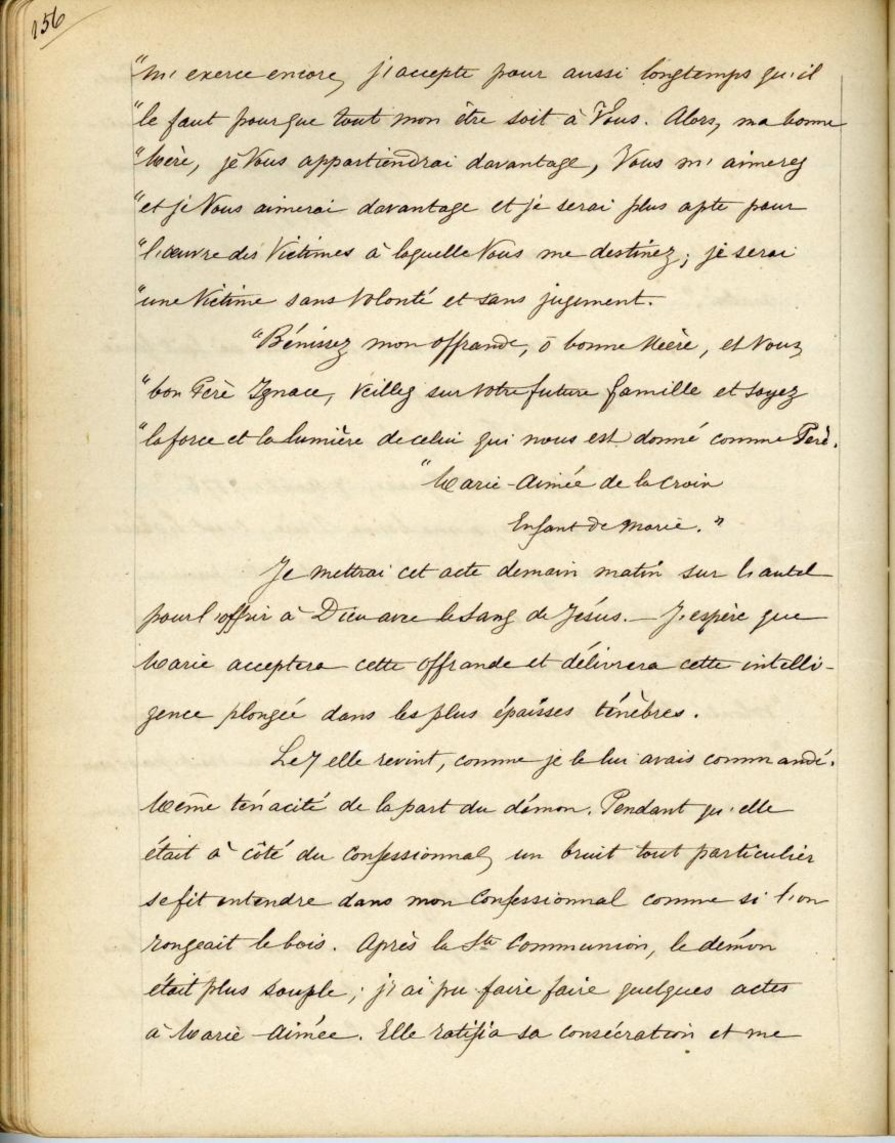 156
"m'exerce encore, j'accepte pour aussi longtemps qu'il
"le faut pour que tout mon être soit à Vous. Alors, ma bonne
"Mère, je Vous appartiendrai davantage, Vous m'aimerez
"et je Vous aimerai davantage et je serai plus apte pour
"l'œuvre des Victimes à laquelle Vous me destinez; je serai
"une Victime sans volonté et sans jugement.
"Bénissez mon offrande, ô bonne Mère, et Vous,
"bon Père Ignace, veillez sur votre future famille et soyez
"la force et la lumière de celui qui nous est donné comme Père.
"Marie-Aimée de la Croix
Enfant de Marie."
Je mettrai cet acte demain matin sur l'autel
pour l'offrir à Dieu avec le Sang de Jésus. — J'espère que
Marie acceptera cette offrande et délivrera cette intelli-
gence plongée dans les plus épaisses ténèbres.
Le 7 elle revint, comme je le lui avais commandé.
Même ténacité de la part du démon. Pendant qu'elle
était à côté du confessionnal, un bruit tout particulier
se fit entendre dans mon confessionnal comme si l'on
rongeait le bois. Après la Ste Communion, le démon
était plus souple; j'ai pu faire faire quelques actes
à Marie-Aimée. Elle ratifia sa consécration et me